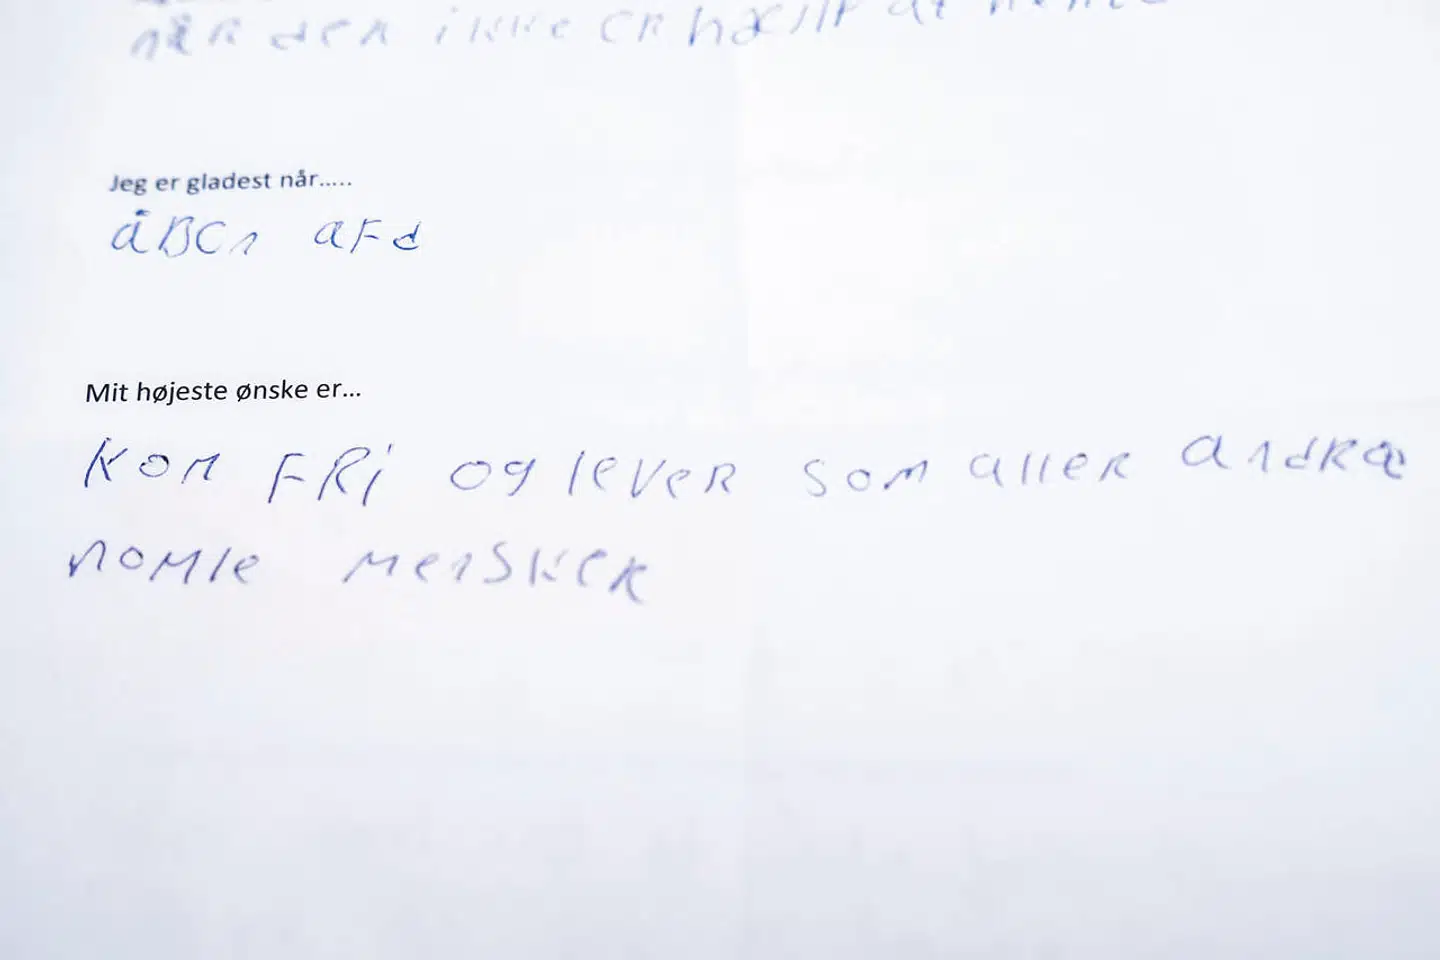 når den ikke er hællt at
Jeg er gladest når.....
åBCn aFd
Mit højeste ønske er...
Kom FRi og lever som aller andRæ
nomle mensker